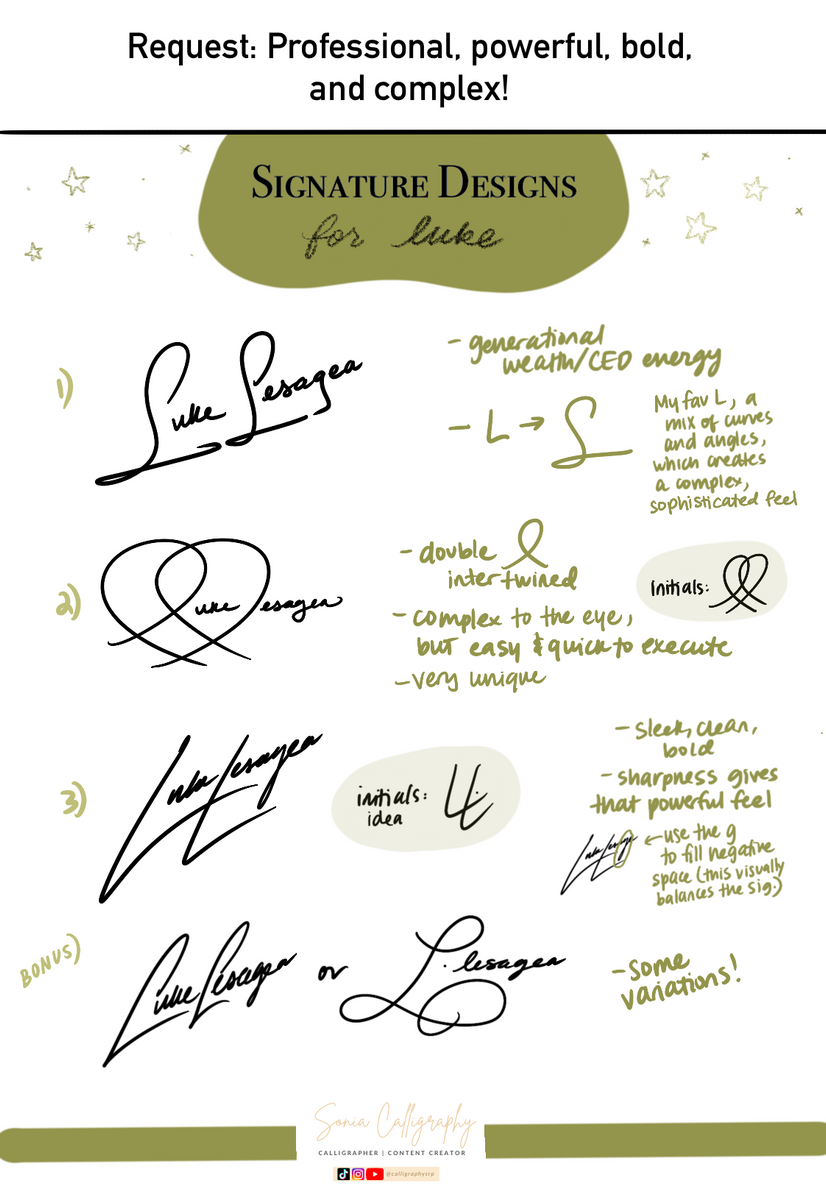 Request: Professional, powerful, bold,
and complex!
SIGNATURE DESIGNS
for luke
1)
Luke Lesagea
- generational
wealth/CEO energy
- L → L
My fav L, a
mix of curves
and angles,
which creates
a complex,
sophisticated feel
2)
Luke Lesagea
- double l
intertwined
- complex to the eye,
but easy & quick to execute
- very unique
Initials: ll
3)
Luke Lesagea
initials: LL
idea
- sleek, clean,
bold
- sharpness gives
that powerful feel
Luke Lesagea
← use the g
to fill negative
space (this visually
balances the sig.)
BONUS)
Luke Lesagea or L. lesagea
- some
variations!
Sonia Calligraphy
CALLIGRAPHER | CONTENT CREATOR
@calligraphysrp